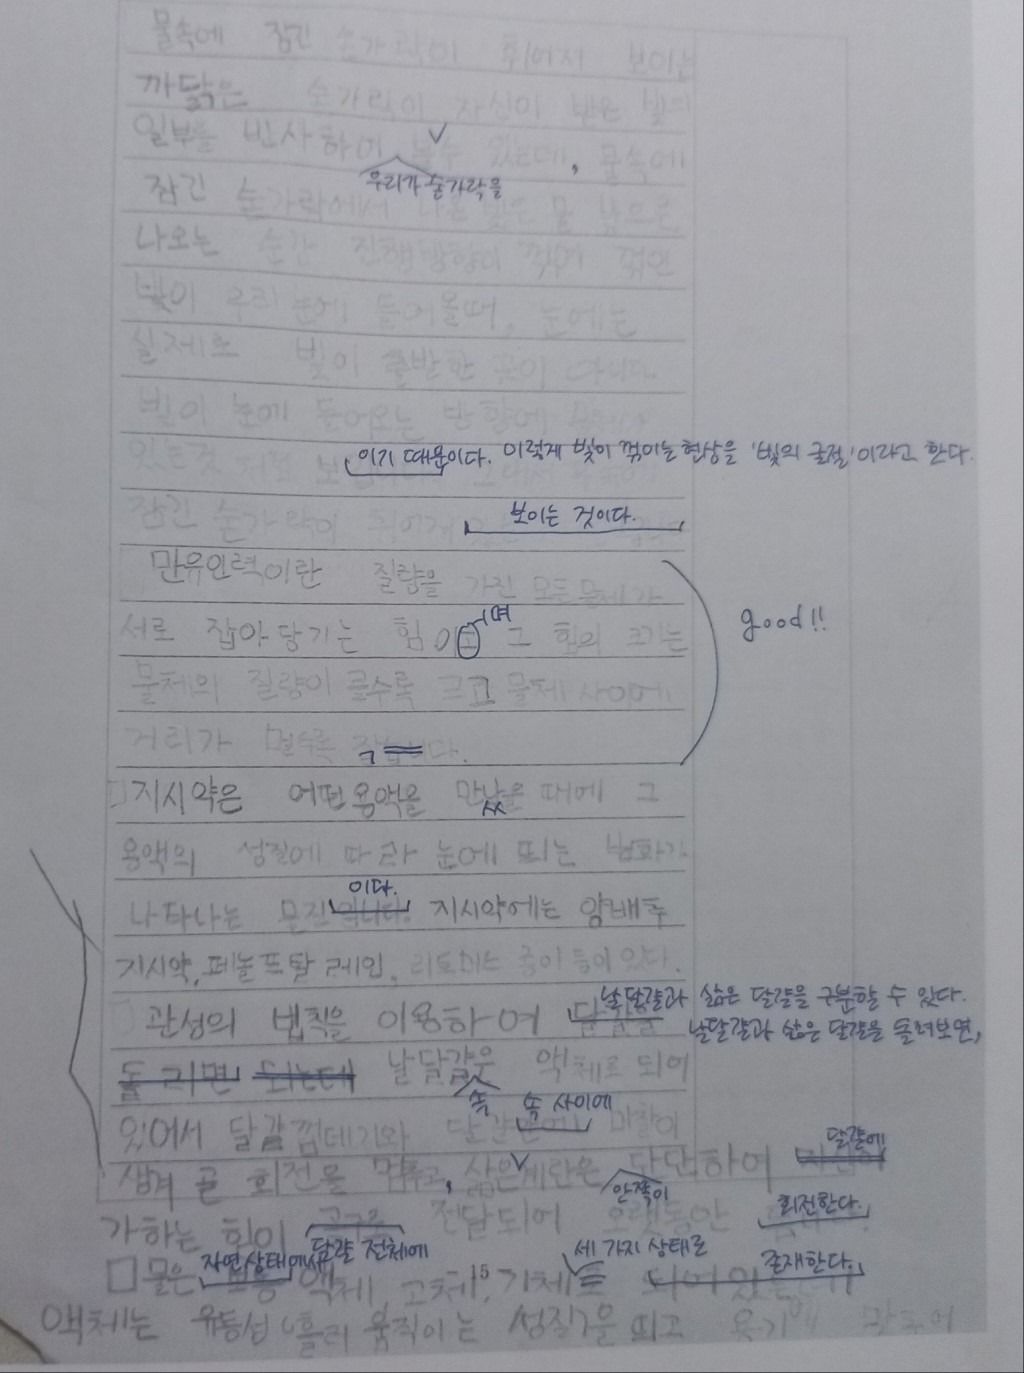 물속에 잠긴 숟가락이 휘어져 보이는
까닭은 숟가락이 자신이 받은 빛의
일부를 반사하여 볼 수 있는데, 물속에
우리가 숟가락을
잠긴 숟가락에서 나온 빛은 물 밖으로
나오는 순간 진행방향이 꺾여 꺾인
빛이 우리 눈에 들어올때, 눈에는
실제로 빛이 출발한 곳이 아니라
빛이 눈에 들어오는 방향에
있는것
이기 때문이다. 이렇게 빛이 꺾이는 현상을 '빛의 굴절'이라고 한다.
잠긴 숟가락이 휘어져
보이는 것이다.
만유인력이란 질량을 가진 모든 물체가
서로 잡아당기는 힘이고 그 힘의 크기는
며
good!!
물체의 질량이 클수록 크고 물체 사이에
거리가 멀수록 작습니다.
지시약은 어떤용액을 만났을 때에 그
용액의 성질에 따라 눈에 띄는 변화가
이다.
나타나는 물질입니다. 지시약에는 양배추
지시약, 페놀프탈레인, 리트머스 종이 등이 있다.
날달걀과 삶은 달걀을 구분할 수 있다.
관성의 법칙을 이용하여
날달걀과 삶은 달걀을 돌려보면,
돌리면 되는데 날달걀은 액체로 되어
속
속 사이에
있어서 달걀껍데기와 마찰이
생겨 곧 회전을 멈추고, 삶은계란은 단단하여
달걀에
안쪽이
가하는 힘이 전달되어 오랫동안
회전한다.
자연상태에서
달걀 전체에
세 가지 상태로
물은 보통 액체, 고체, 기체로 되어있
존재한다.
액체는 유동성(흘러 움직이는 성질)을 띠고 용기에